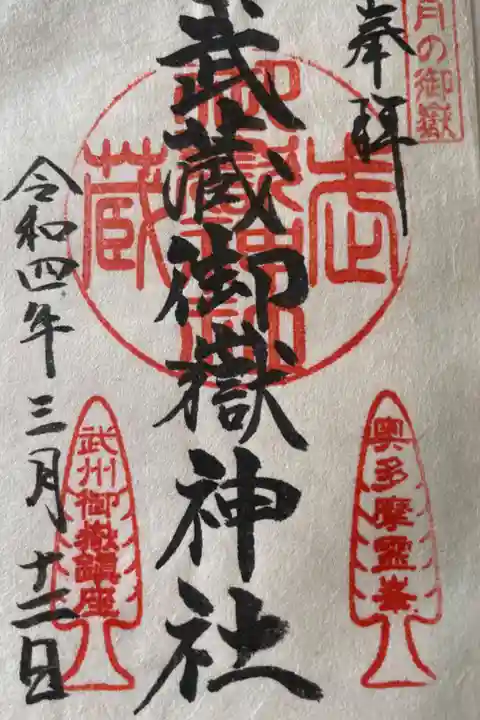 月の御嶽
奉拝
武蔵御嶽神社
武
蔵
奥多摩霊峯
武州御嶽鎮座
令和四年三月十二日